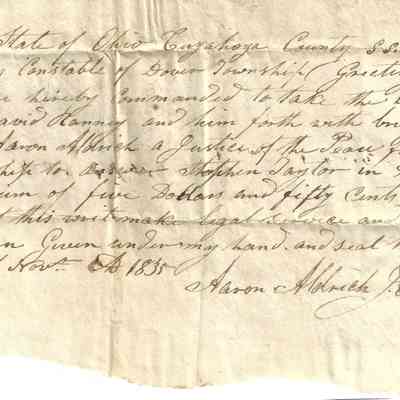 State of Ohio Cuyahoga County S.S.
Constable of Dover Township Greeti
hereby Commanded to take the
avid Hanney and him forth with br
Aaron Aldrich a Justice of the Peace f
ship to answer Stephen Taylor in
um of five Dollars and fifty Cents
this writ make legal service and
Given under my hand and seal
Novr. AD 1835
Aaron Aldrich J.